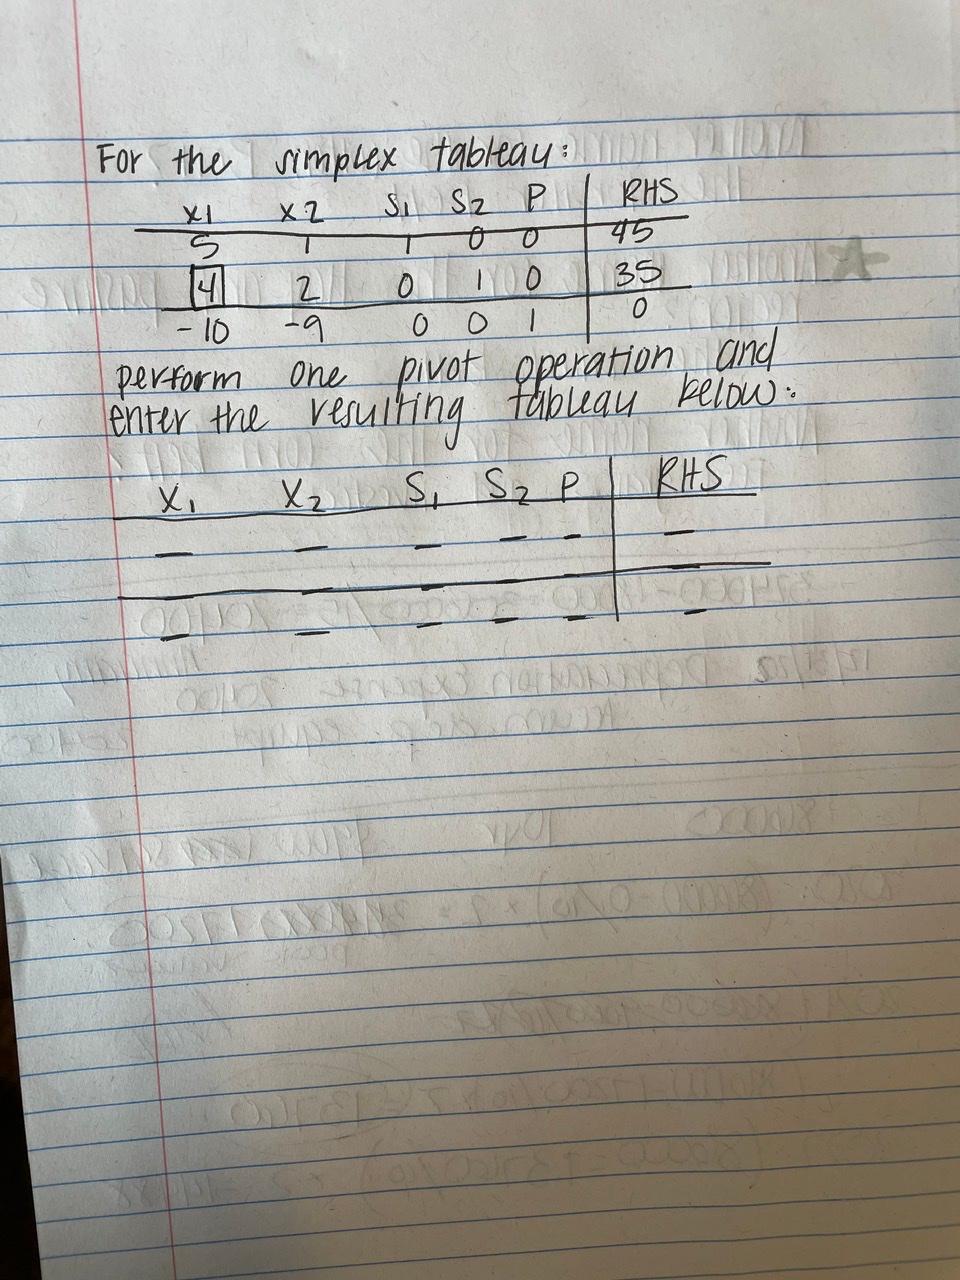 For the simplex tableau:
x1 x2 S1 S2 P RHS
5 1 1 0 0 45
4 2 0 1 0 35
-10 -9 0 0 1 0
perform one pivot operation and
enter the resulting tableau below:
X1 X2 S1 S2 P RHS